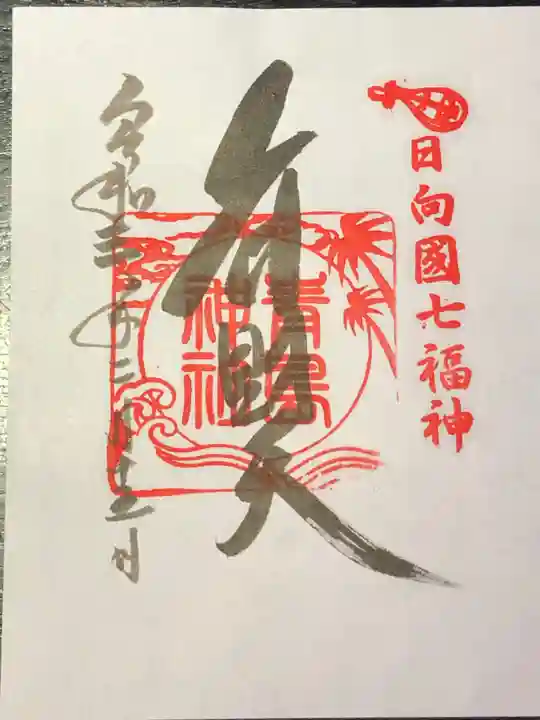 日向國七福神
弁財天
青島
神社
令和三年二月日